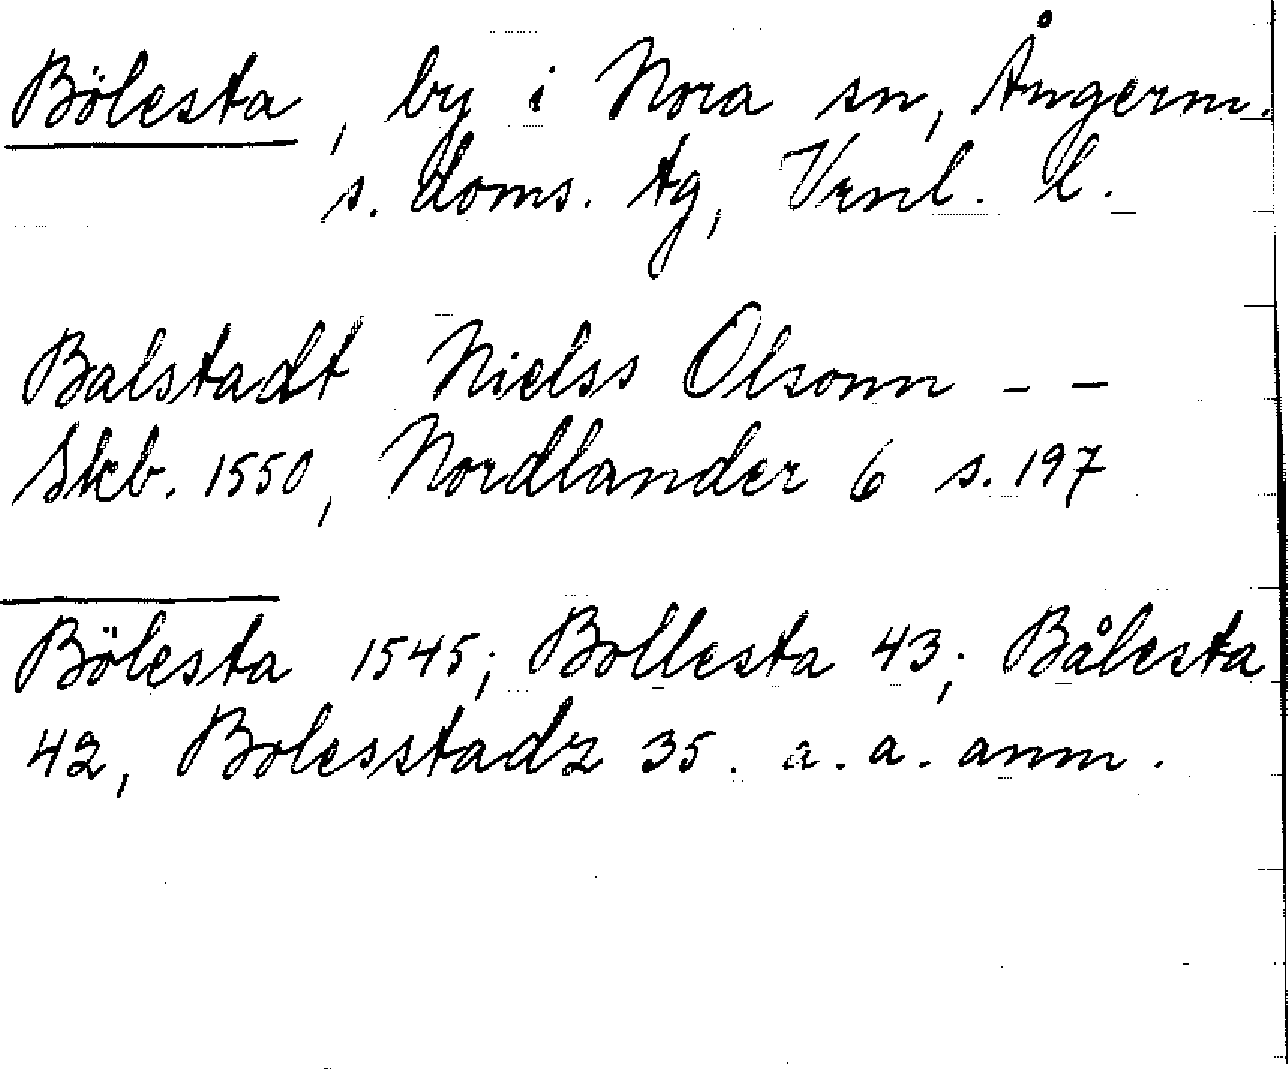 Bölesta, by i Nora sn, Ångerm.
s. doms. tg, Vrnl. l.
Balstadt Nielss Olsonn - -
Skb. 1550, Nordlander 6 s. 197
Bölesta 1545; Bollesta 43; Bålesta
42, Bolesstadz 35. a. a. anm.